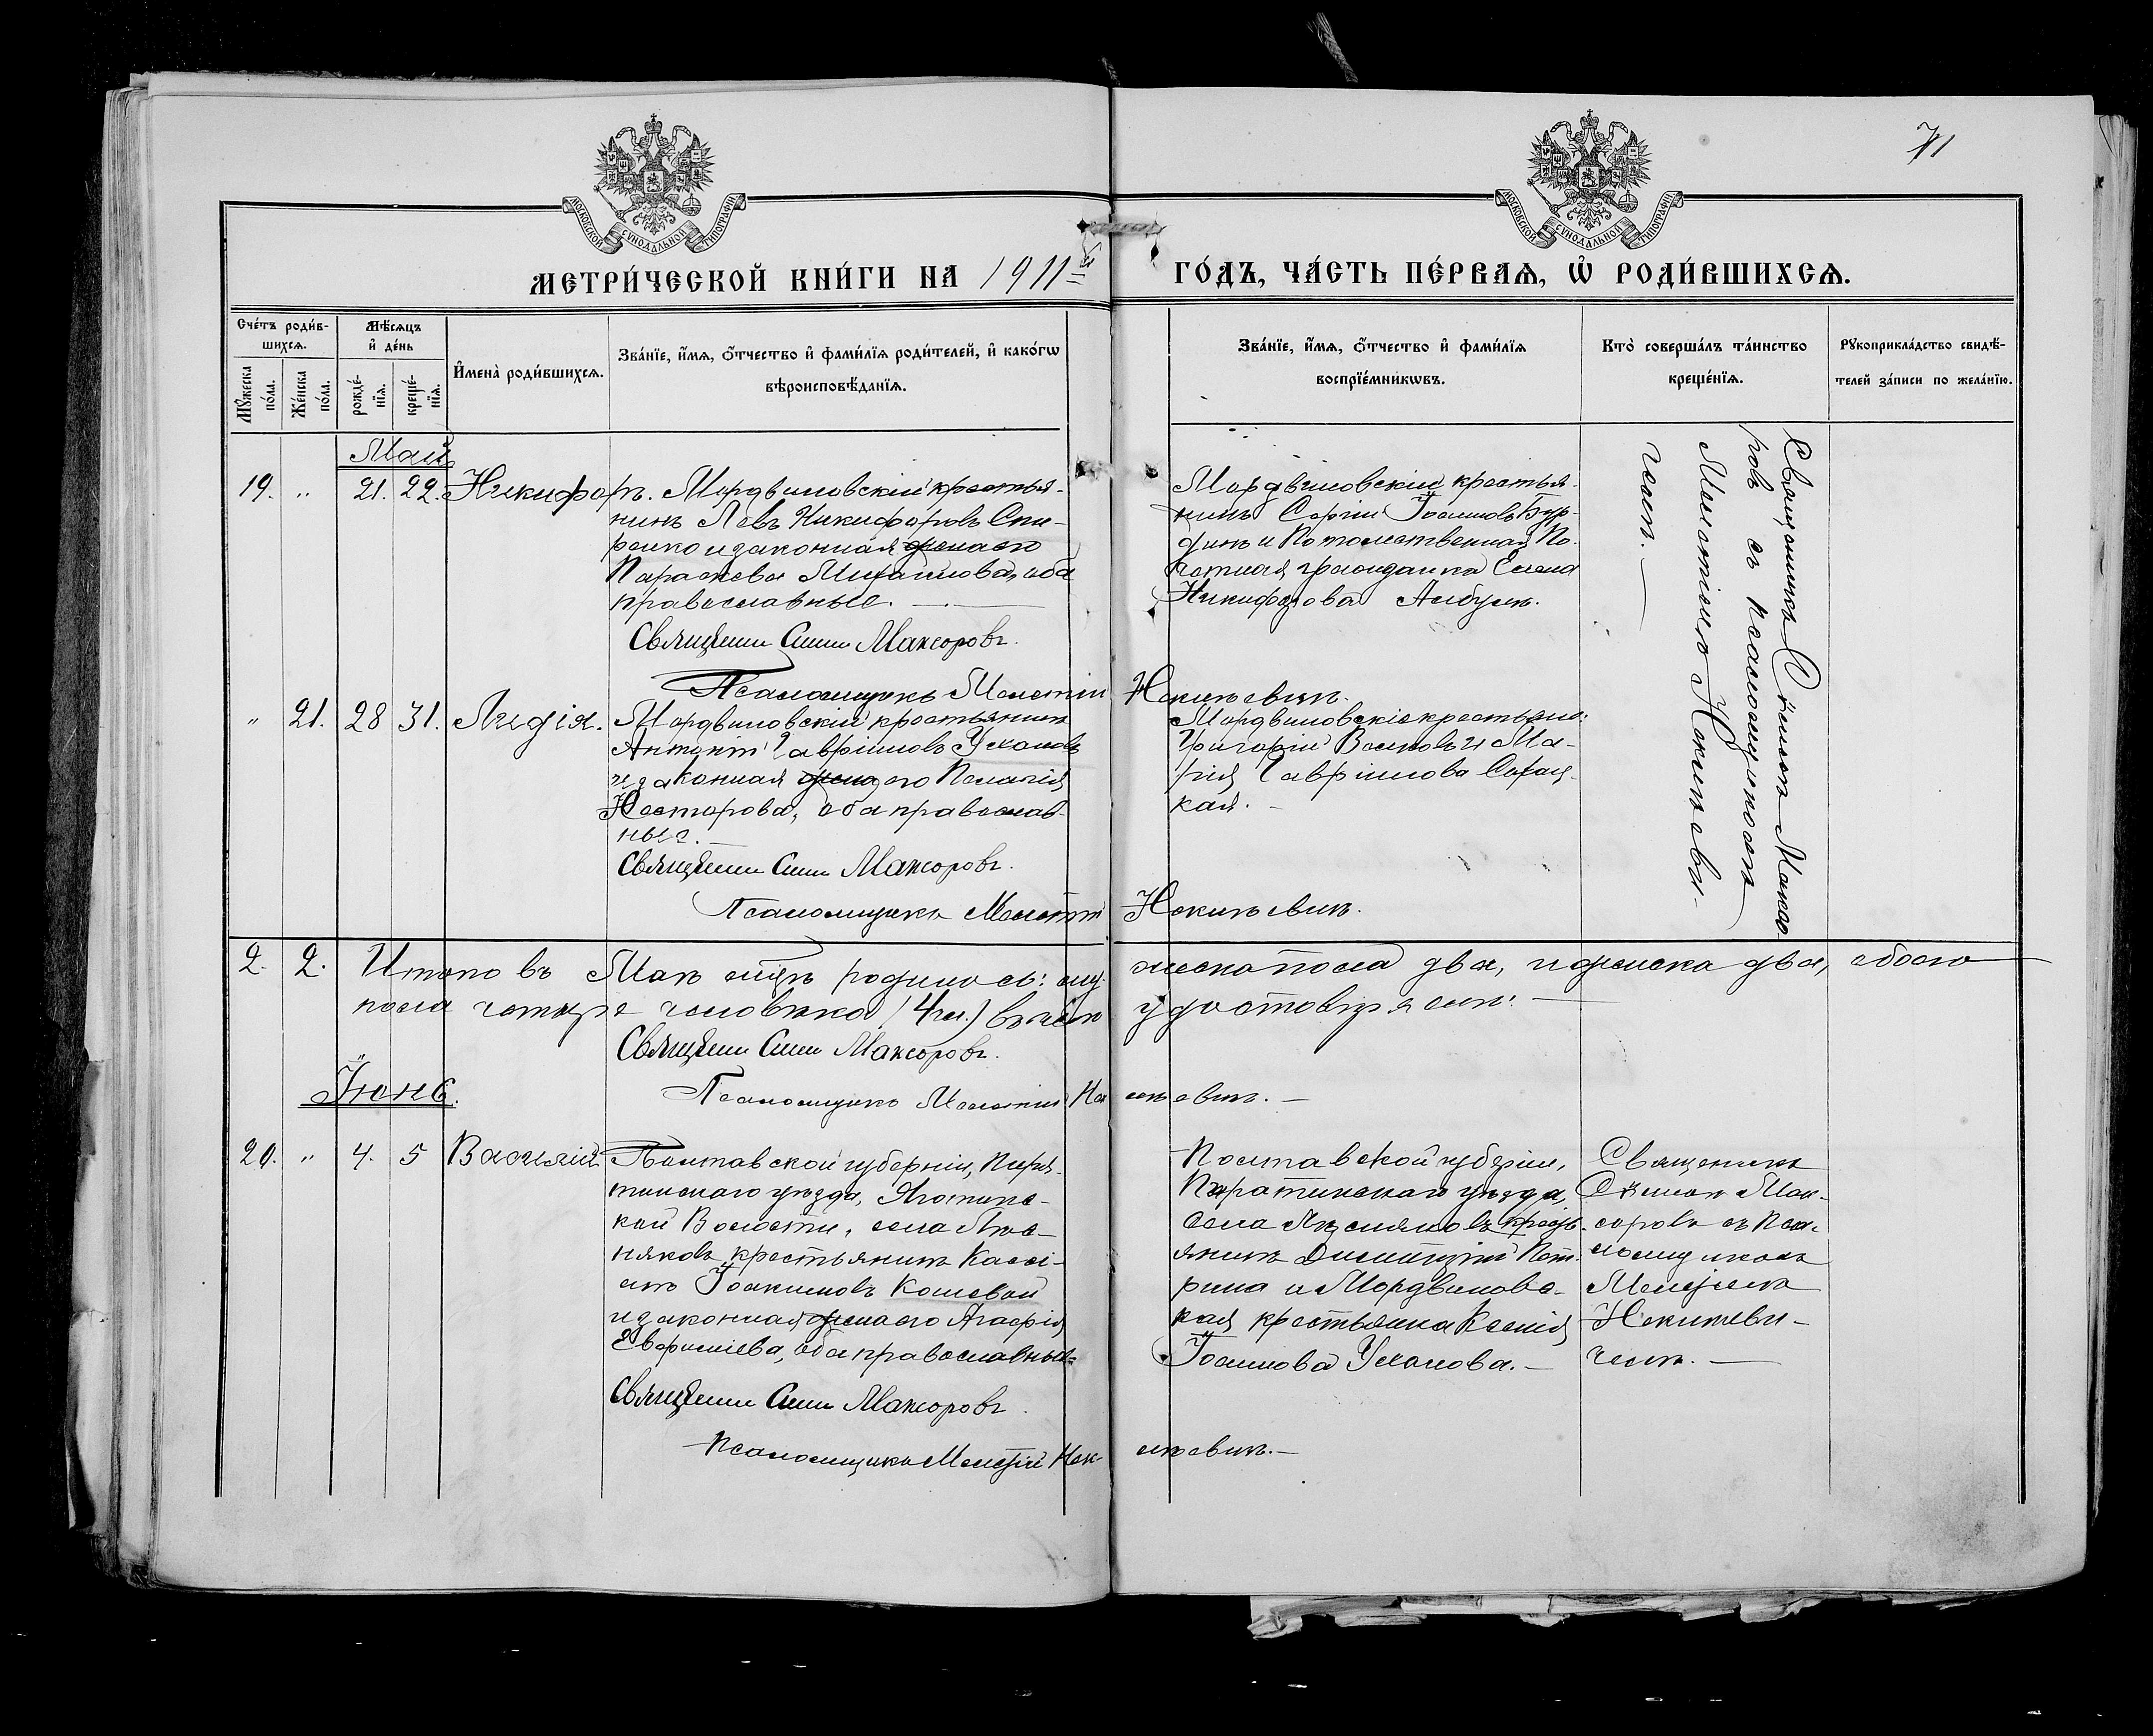 71
МОСКОВСКОЙ СУНОДАЛЬНОЙ ТИПОГРАФІИ
МОСКОВСКОЙ СУНОДАЛЬНОЙ ТИПОГРАФІИ
МЕТРИ́ЧЕСКОЙ КНИ́ГИ НА 1911й ГО́ДЪ, ЧА́СТЬ ПЕ́РВАѦ, Ѡ҆ РОДИ́ВШИХСѦ.
Сче́тъ роди́в-
шихсѧ.
Мꙋ́жеска по́ла.
Же́нска по́ла.
Мѣ́сѧцъ и҆ де́нь
рожде́-
нїѧ.
креще́-
нїѧ.
И҆мена̀ роди́вшихсѧ.
Зва́нїе, и҆́мѧ, ѻ҆́тчество и҆ фами́лїѧ роди́телей, и҆ како́гѡ
вѣроисповѣ́данїѧ.
Зва́нїе, и҆́мѧ, ѻ҆́тчество и҆ фами́лїѧ
воспрїе́мникѡвъ.
Кто̀ соверша́лъ та́инство
креще́нїѧ.
Рꙋкоприкла́дство свидѣ́-
телей за́писи по жела́нїю.
Май
19. „ 21. 22. Никифоръ.
Мордвиновскій крестья-
нинъ Левъ Никифоровъ Спи-
ренко и законная жена его
Параскева Михайлова, оба
православные.
Священ Сим Максоровъ.
Псаломщикъ Мелетій Некитевичъ.
Мордвиновскій крестья-
нинъ Сергій Іоанновъ Бур-
динъ и Потомственная По-
четная гражданка Елена
Никифорова
Священникъ Симеонъ Максо-
ровъ съ псаломщикомъ
Мелетіемъ Некитеви-
чемъ.
„ 21. 28 31. Лидія.
Мордвиновскій крестьянинъ
Антоній Гавріиловъ Ухановъ
и законная жена его Пелагія
Несторова, оба православ-
ные.
Священ Сим Максоровъ.
Псаломщикъ Мелетій Некитевичъ.
Мордвиновскіе крестьяне:
Григорій Волковъ и Ма-
рія Гавріилова
кая.
2. 2. Итого въ Маѣ мцѣ родилось: му-
жеска пола два, и женска два, обоего
пола четыре человѣка (4 ч.) въ чемъ удостовѣряемъ:
Священ Сим Максоровъ.
Псаломщикъ Мелетій Некитевичъ.
Іюнь.
20. „ 4. 5 Василій
Полтавской губерніи, Пиря-
тинскаго уѣзда, Яготинс-
кой Волости, села
няковъ крестьянинъ Кассі-
анъ Іоакимовъ Кошевой
и законная жена его Агафія
оба православные.
Священ Сим Максоровъ.
Псаломщикъ Мелетій Некитевичъ.
Полтавской губерніи,
Пирятинскаго уѣзда,
села кресть-
янинъ Димитрій Пет-
рина и Мордвиновс-
кая крестьянка Ксенія
Іоаннова Уханова.
Священникъ
Симеонъ Мак-
соровъ съ Пса-
ломщикомъ
Мелетіемъ
Некитеви-
чемъ.